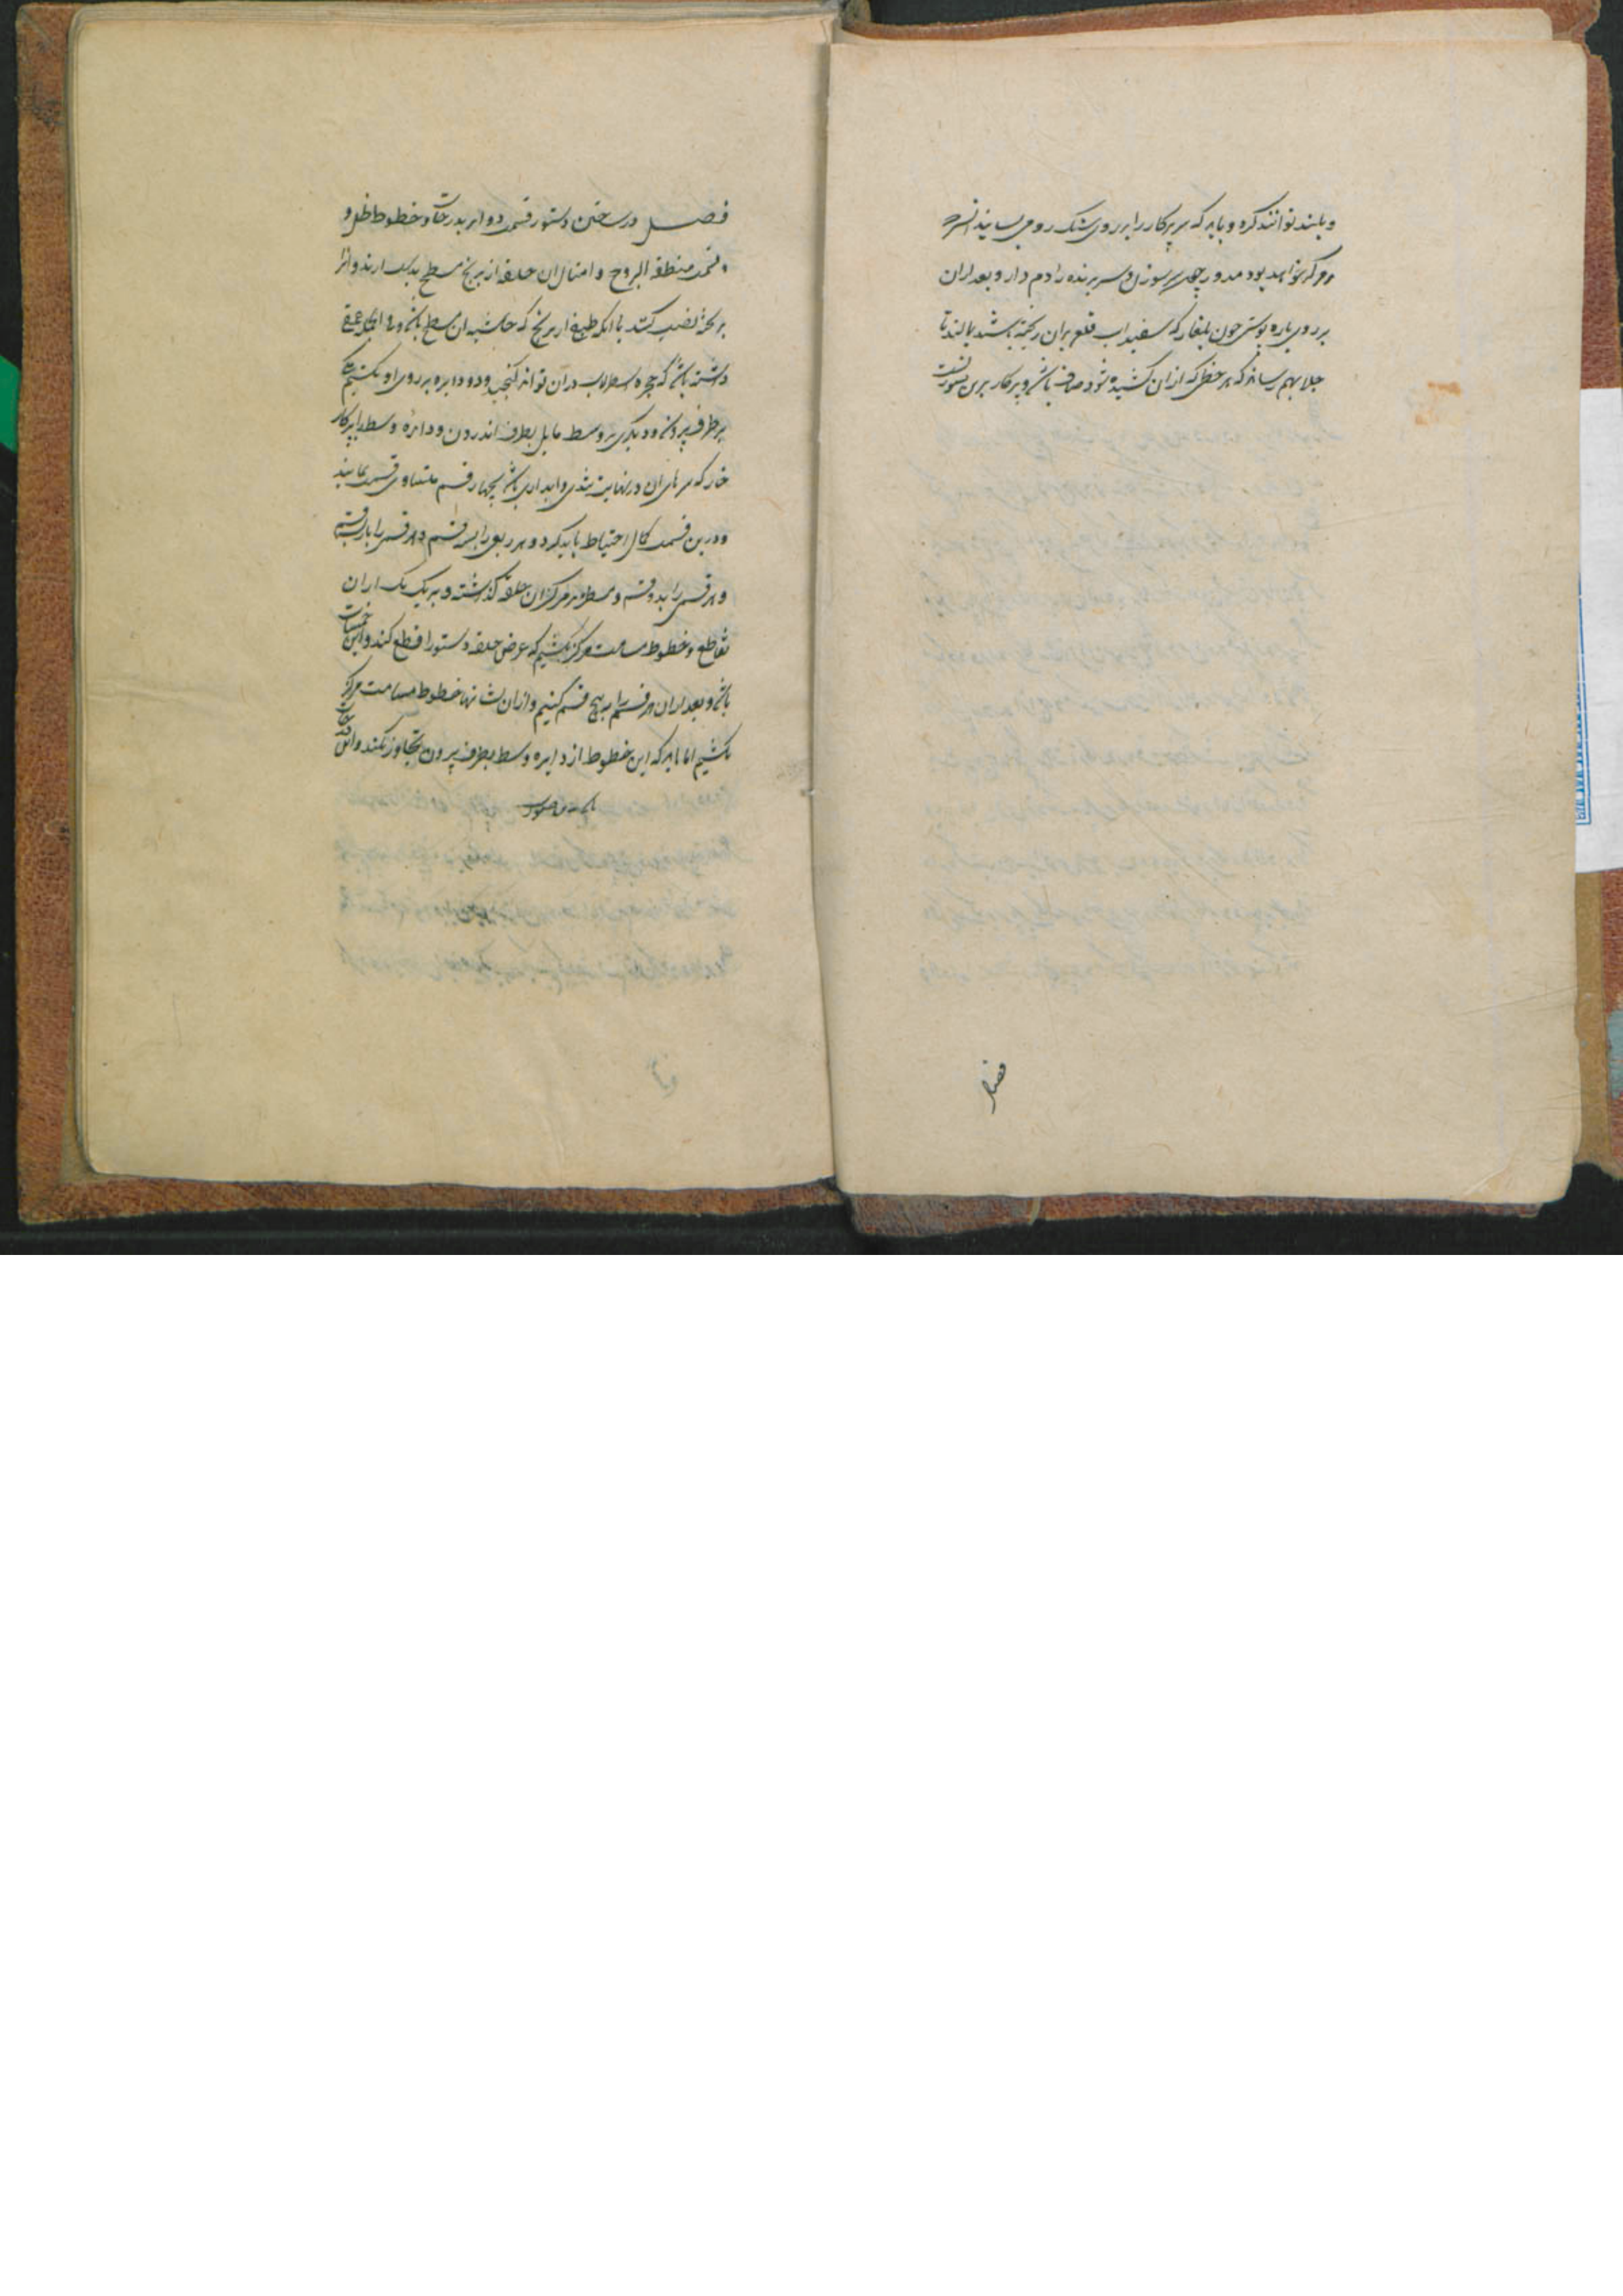 و بلند توانند کرد و باید که سر پرکار را بر روی سنک رومی بسایند
مرکز خواهد بود مدور چون سر سوزن و سر برنده را دم دار و بعد ازان
بر روی پاره پوستی چون بلغار که سفیداب قلع بران ریخته باشند بمالند تا
جلا بهم رساند که هر خطی که ازان کشیده شود صاف باشد و پرکار برین صورتست
فصل
فصل در ساختن دستور قسمت دوایر بدرجات و خطوط ظل و
قسمت منطقة البروج و امثال ان حلقه از برنج مسطح بدست ارند و انرا
بر تخته نصب کنند یا انکه طبقه از برنج که حاشیه ان مسطح باشد و فی الجمله عمقی
داشته باشد که حجره اسطرلاب در آن تواند کنجید و دو دایره بر روی او بکشیم یکی
بر طرف بیرون و دیکری بر وسط مایل بطرف اندرون و دایره وسط را بپرکار
خار که سر های ان در نهایت تندی و ابداری باشد بچهار قسم متساوی قسمت نمایند
و درین قسمت کمال احتیاط باید کرد و هر ربعی را بسه قسم و هر قسمی را باز بسه قسم
و هر قسمی را بدو قسم و مسطر بر مرکز ان حلقه کذاشته و بر یک یک از ان
تقاطع و خطوط مسامت مرکز بکشیم که عرض حلقه دستور را قطع کند و این خمسات
باشد و بعد از ان هر قسم را به پنج قسم کنیم و ازان نشانها خطوط مسامت مرکز
بکشیم اما باید که این خطوط از دایره وسط بطرف بیرون تجاوز نکند و این درجات